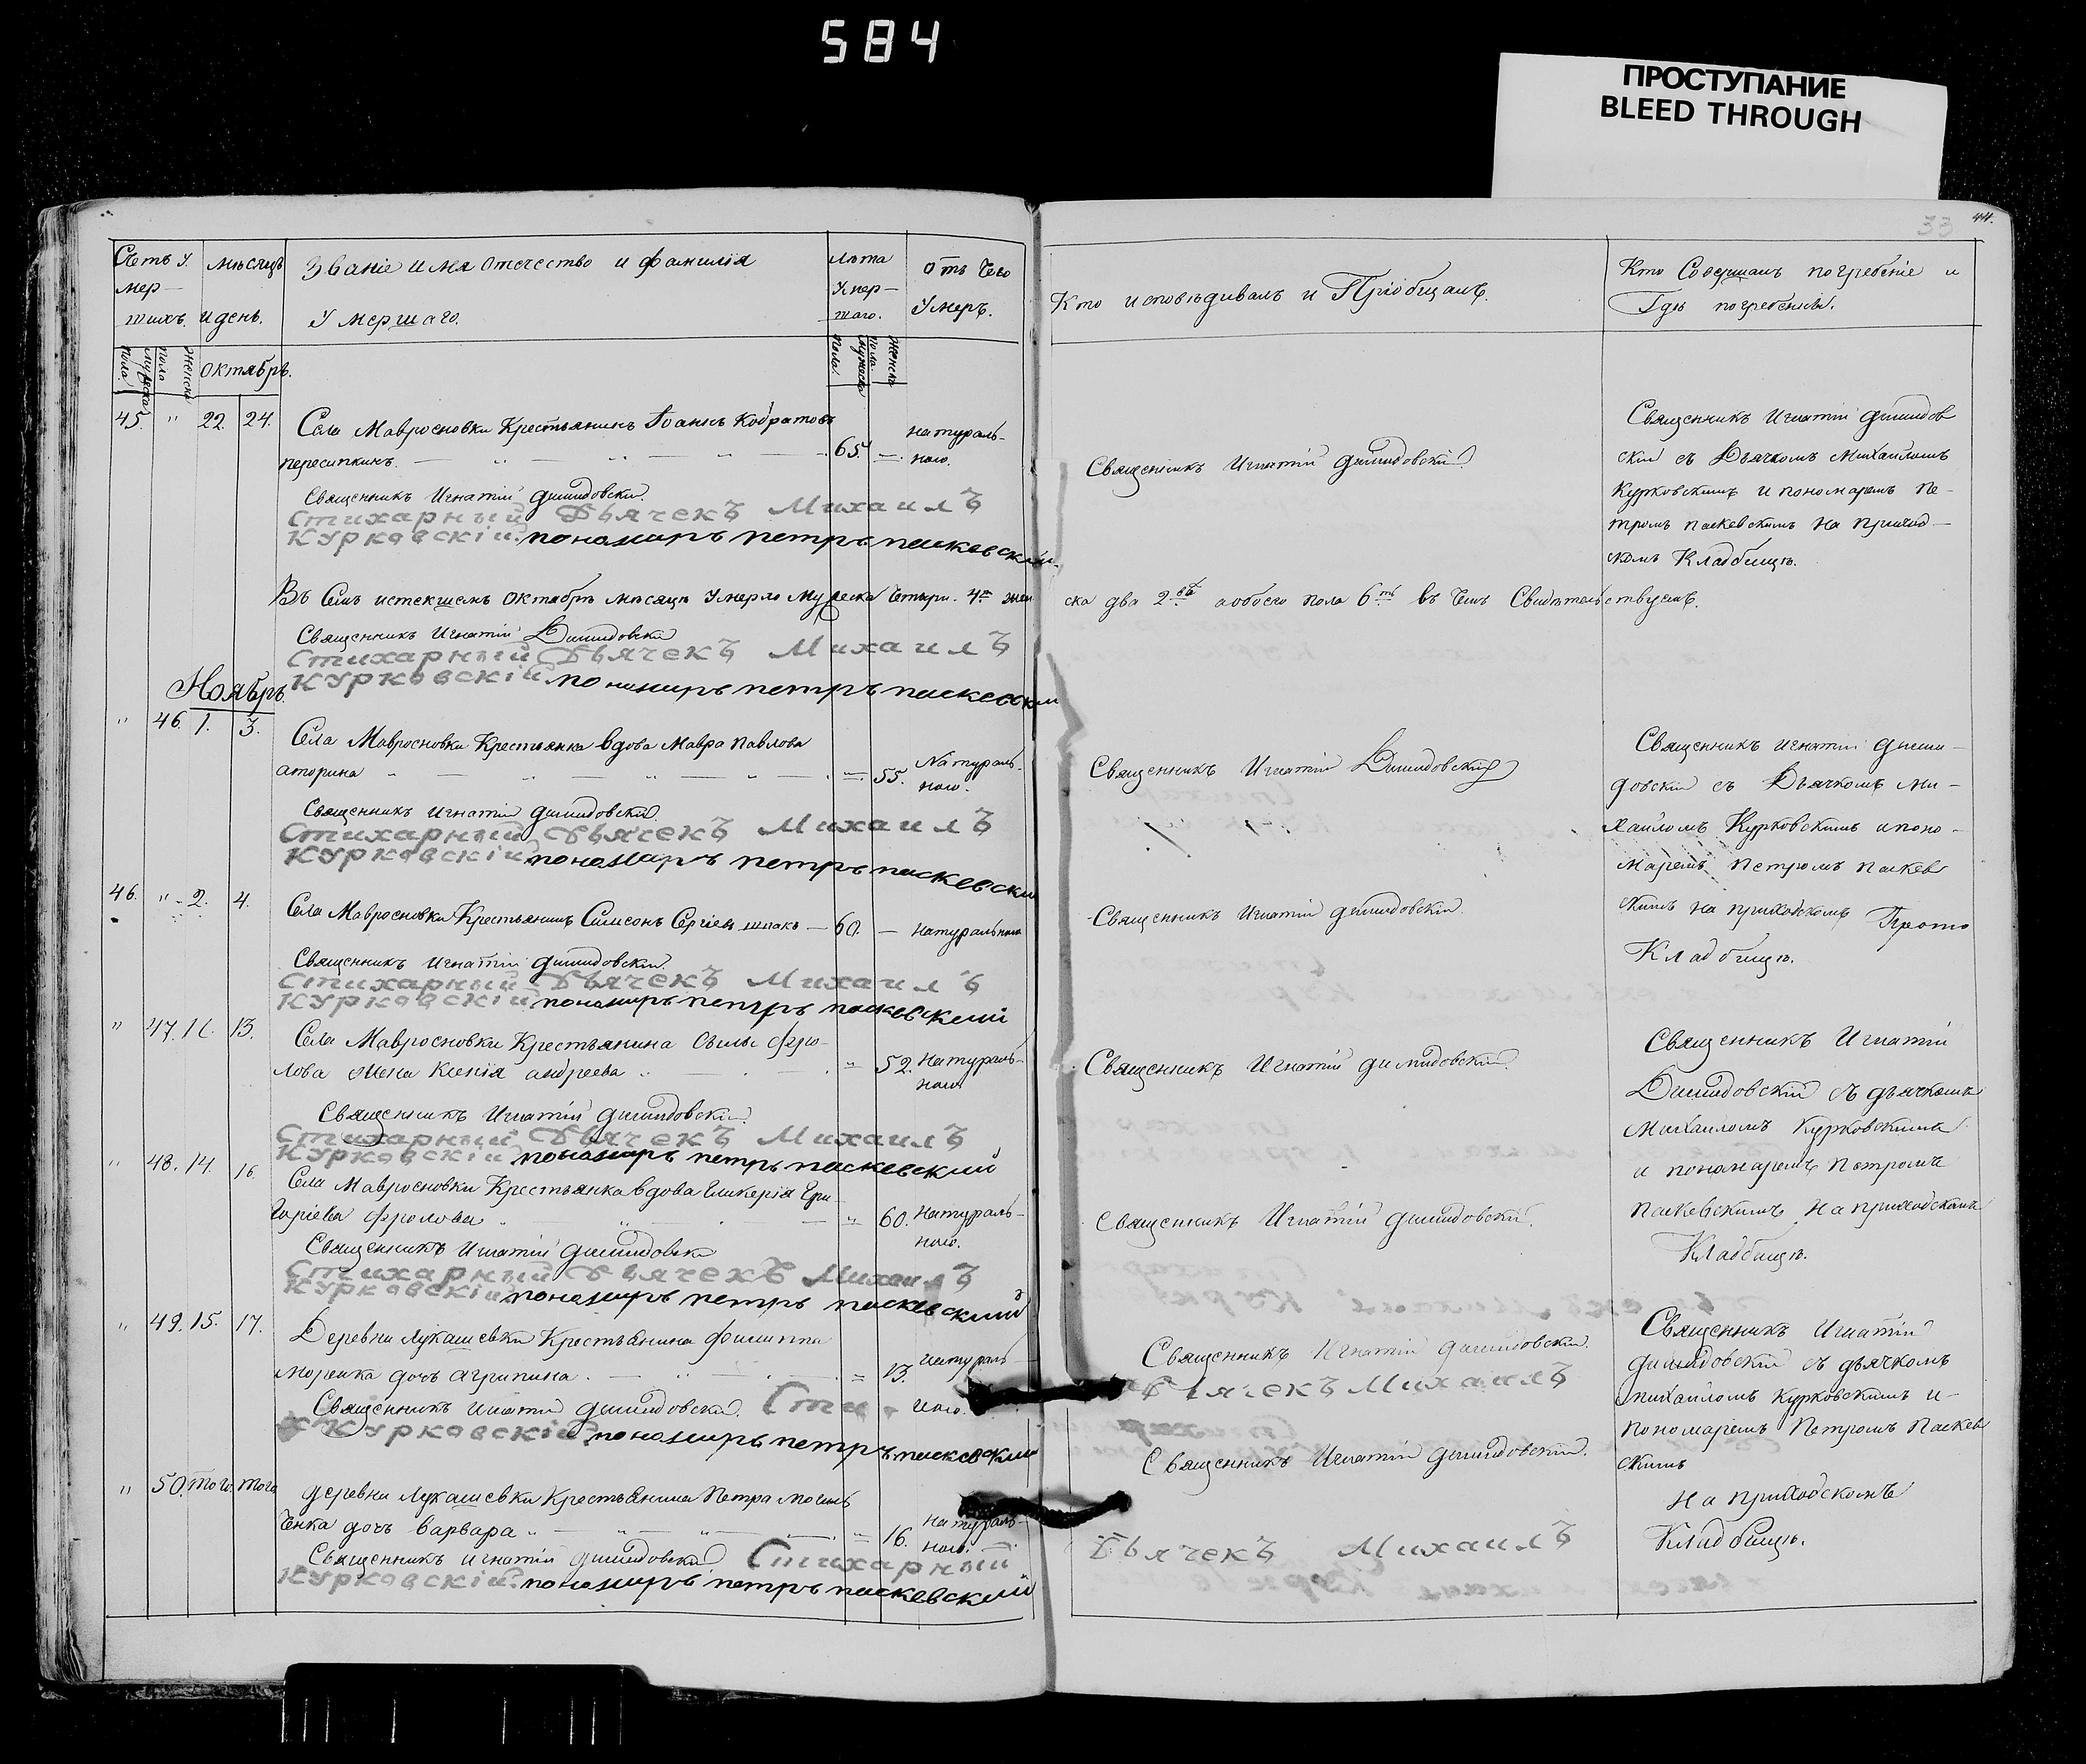 584
ПРОСТУПАНИЕ
BLEED THROUGH
33 44.
Счетъ У
мер-
шихъ.
мѣсяцъ
и день.
Званіе имя отечество и фамилія
Умершаго.
лѣта
Умер-
шаго.
отъ чего
Умеръ.
Кто исповѣдивалъ и Пріобщалъ.
Кто Совершалъ погребеніе и
Гдѣ погребены.
Октябрь.
45. " 22. 24. Села Мавросновки Крестьянинъ Іоаннъ Кодратовъ
пересипкинъ. 65. натураль-
наго.
Священникъ Игнатій Дишидовскій.
Стихарный Дьячекъ Михаилъ
Курковскій. пономаръ петръ паскевский.
Священникъ Игнатій Дишидовскій.
Священникъ Игнатій Дишидов
скій съ Дьячкомъ Михаиломъ
Курковскимъ и пономаремъ Пе-
тромъ паскевскимъ на приход-
скомъ Кладбищѣ.
Въ Семъ истекшемъ Октябрѣ мѣсяцѣ Умерло Мужеска Четыри. 4 жен ска два 2 а обоего пола 6 въ чемъ Свидѣтельствуемъ.
Священникъ Игнатій Дишидовскій
Стихарный Дьячекъ Михаилъ
Курковскій. пономаръ петръ паскевский
Ноябрь.
" 46. 1. 3. Села Мавросновки Крестьянка вдова Мавра Павлова
55. Натураль-
наго.
Священникъ Игнатій Дишидовскій.
Стихарный Дьячекъ Михаилъ
Курковскій пономаръ петръ паскевский
Священникъ Игнатій Дишидовскій
Священникъ Игнатій Диши-
довскій съ Дьячкомъ Ми-
хаиломъ Курковскимъ и поно-
маремъ Петромъ Паскев
скимъ на приходскомъ
Кладбищѣ.
46. " 2. 4. Села Мавросновки Крестьянинъ Симеонъ Сергіевъ шпакъ 60. натуральнаго
Священникъ Игнатій Дишидовскій.
Стихарный Дьячекъ Михаилъ
Курковскій пономаръ петръ паскевский
Священникъ Игнатій Дишидовскій.
" 47. 11. 13. Села Мавросновки Крестьянина Фро-
лова жена Ксенія андреева 52. Натураль-
наго.
Священникъ Игнатій Дишидовскій.
Стихарный Дьячекъ Михаилъ
Курковскій пономаръ петръ паскевский
Священникъ Игнатій Дишидовскій.
Священникъ Игнатій
Дишидовскій съ дьячкомъ
Михаиломъ Курковскимъ
и пономаремъ Петромъ
Паскевскимъ на приходскомъ
Кладбищѣ.
" 48. 14. 16. Села Мавросновки Крестьянка вдова Гликерія Гри-
горіева Фролова 60. Натураль-
наго.
Священникъ Игнатій Дишидовскій
Стихарный Дьячекъ Михаилъ
Курковскій пономаръ петръ паскевский
Священникъ Игнатій Дишидовскій.
" 49. 15. 17. Деревни Лукашевки Крестьянина Филиппа
моренка дочь агрипина. 13. Натураль-
наго.
Священникъ Игнатій Дишидовскій. Сти-
Курковскій. пономаръ петръ паскевский
Священникъ Игнатій Дишидовскій.
Дьячекъ Михаилъ
Священникъ Игнатій
Дишидовскій съ дьячкомъ
михаиломъ Курковскимъ и
пономаремъ Петромъ Паскев
скимъ
на приходскомъ
Кладбищѣ.
" 50. того. того. деревни Лукашевки Крестьянина Петра
дочь варвара 16. натураль-
наго.
Священникъ Игнатій Дишидовскій Стихарный
Курковскій. пономаръ петръ паскевский
Священникъ Игнатій Дишидовскій.
Дьячекъ Михаилъ